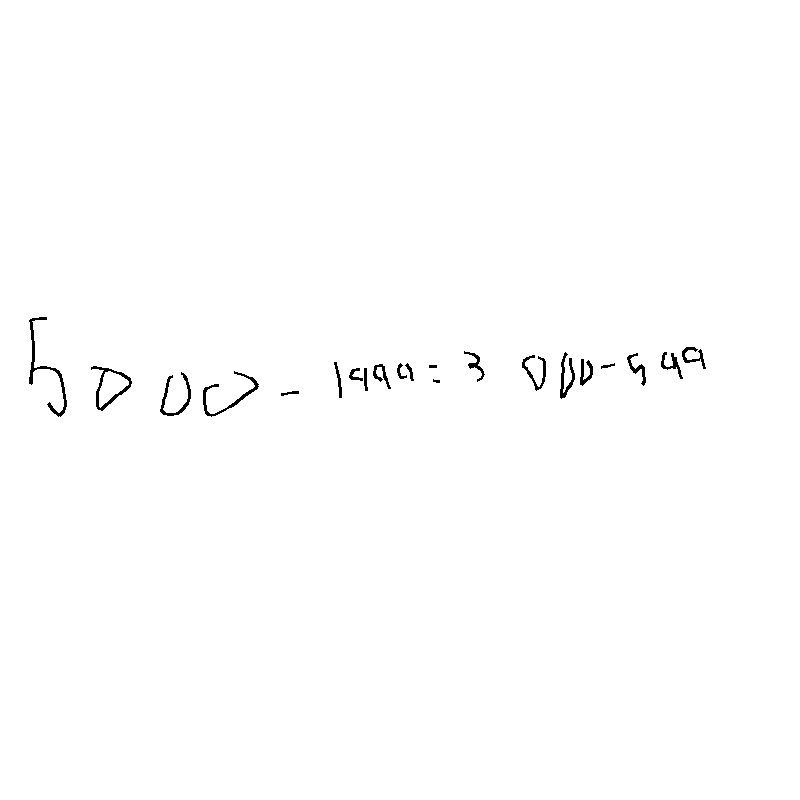 5000 - 1999 = 3 000 - 599